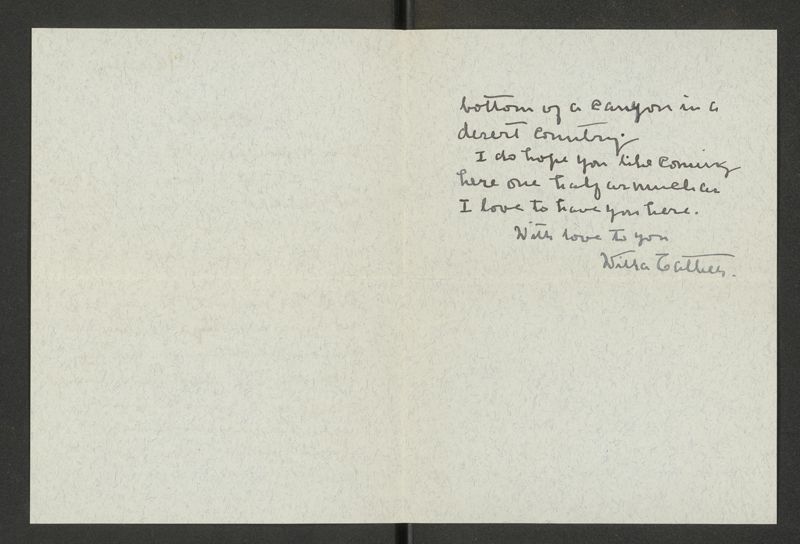 bottom of a canyon in a
desert country.
I do hope you like coming
here one half as much as
I love to have you here.
With love to you
Willa Cather.